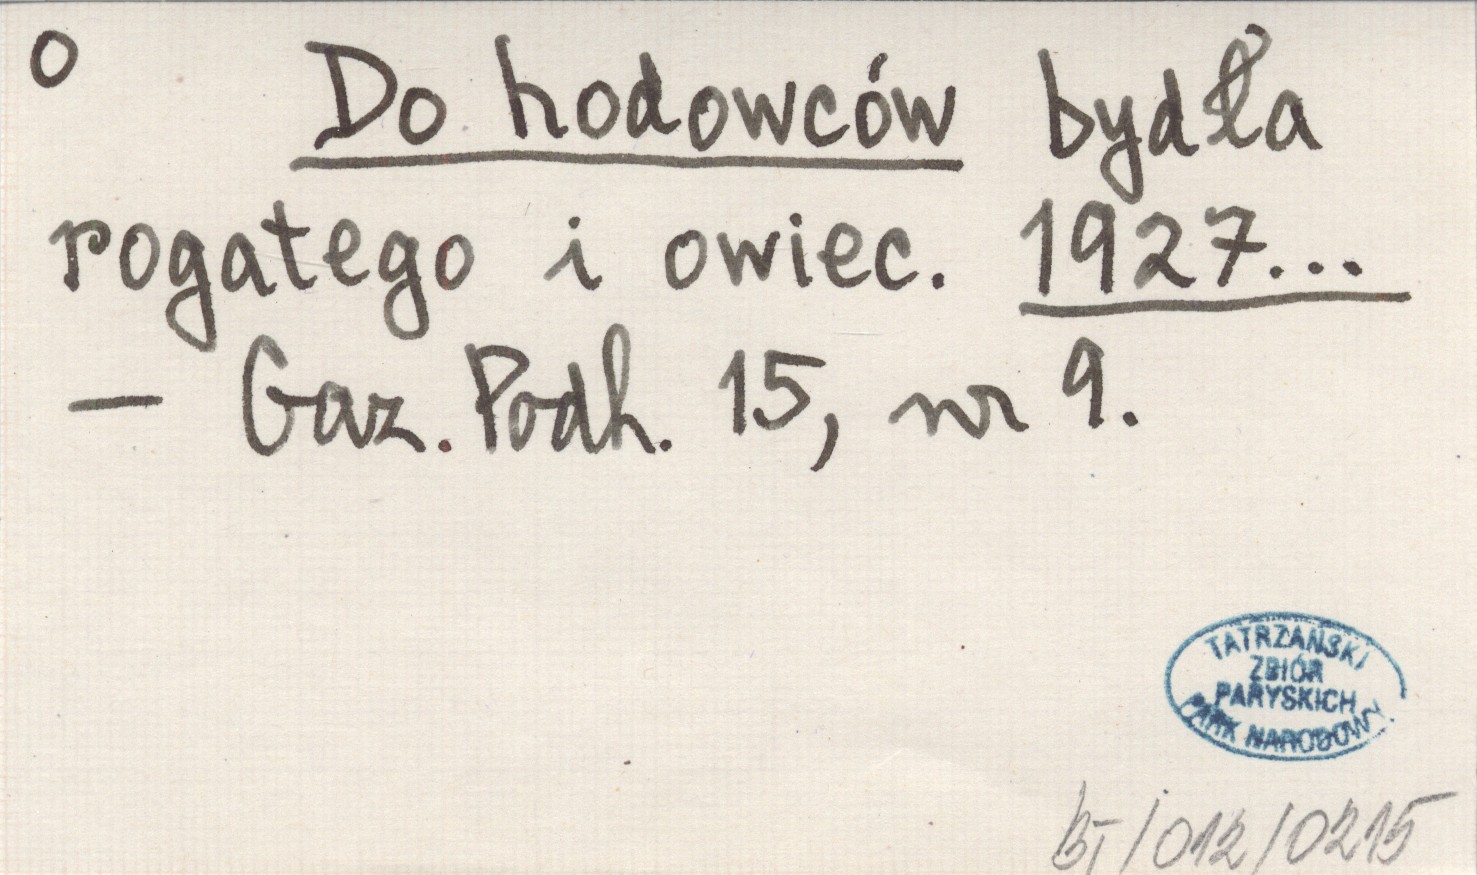 o Do hodowców bydła
rogatego i owiec. 1927...
— Gaz. Podh. 15, nr 9.
TATRZAŃSKI
ZBIÓR
PARYSKICH
PARK NARODOWY
BT/012/0215